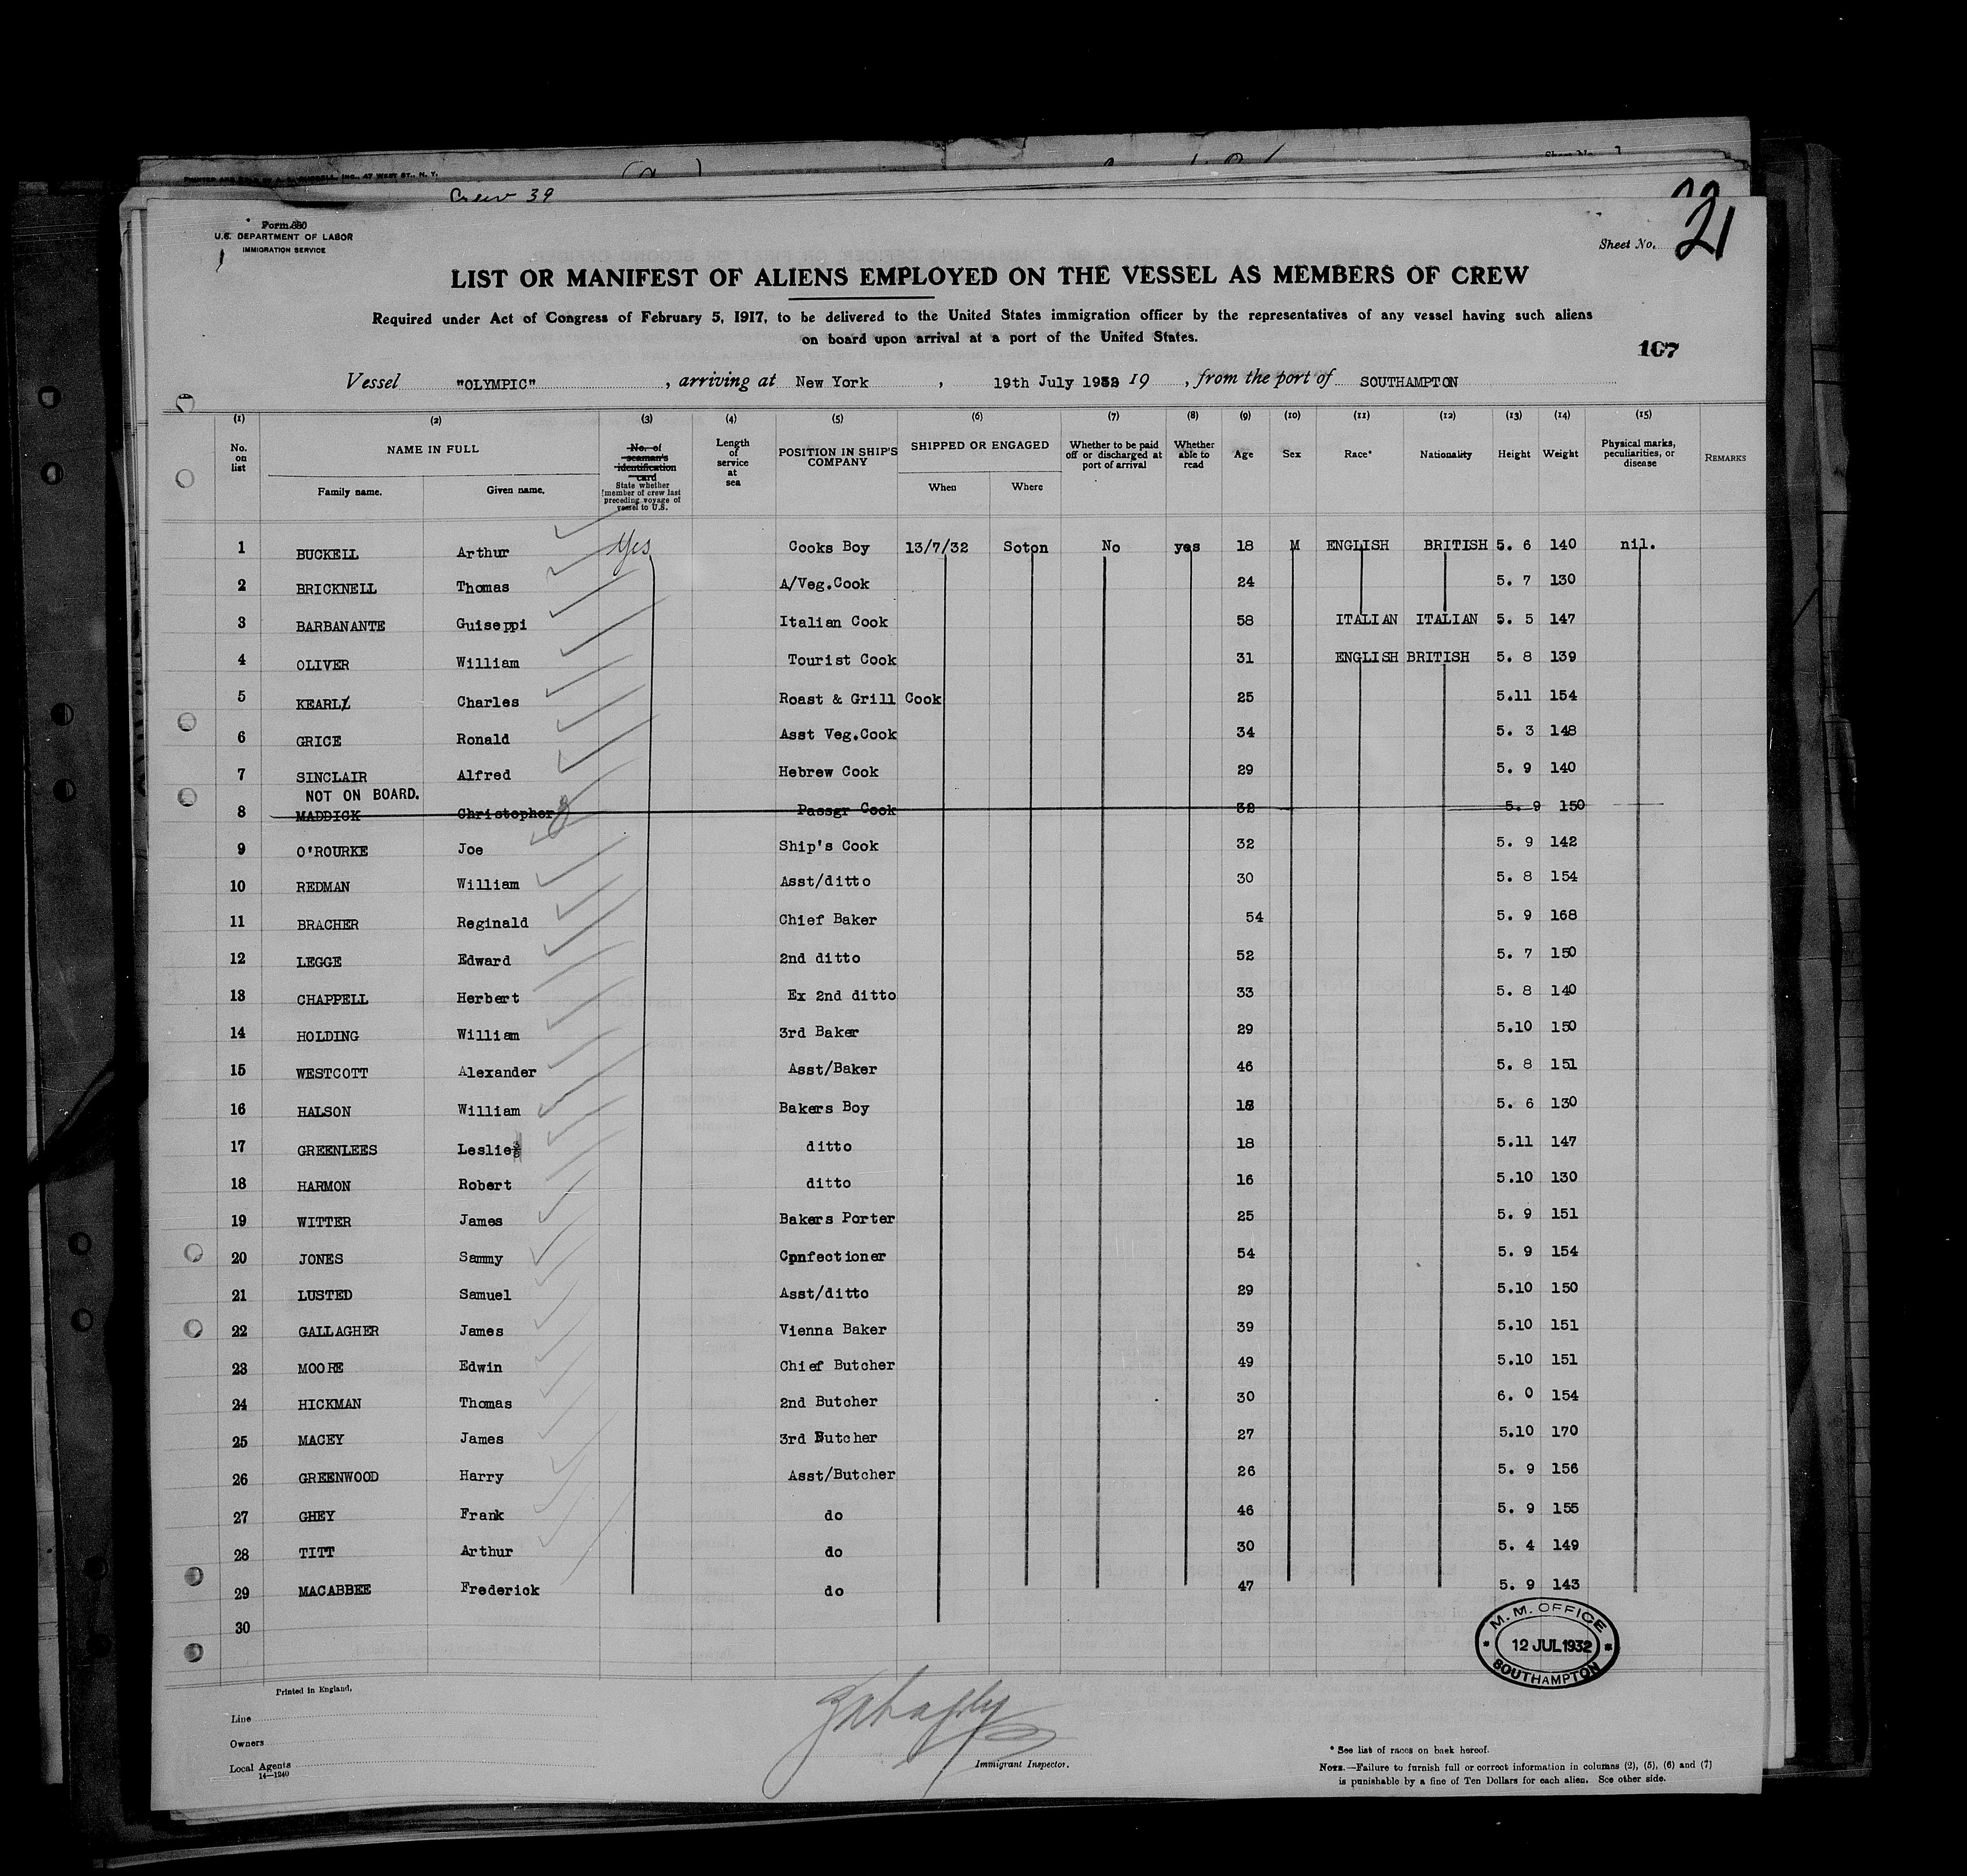 Crew 39
Form 680
U.S. DEPARTMENT OF LABOR
IMMIGRATION SERVICE
Sheet No. 21
LIST OR MANIFEST OF ALIENS EMPLOYED ON THE VESSEL AS MEMBERS OF CREW
Required under Act of Congress of February 5, 1917, to be delivered to the United States immigration officer by the representatives of any vessel having such aliens
on board upon arrival at a port of the United States.
107
Vessel "OLYMPIC", arriving at New York, 19th July 1932 19, from the port of SOUTHAMPTON
(1) (2) (3) (4) (5) (6) (7) (8) (9) (10) (11) (12) (13) (14) (15)
No. on list NAME IN FULL Family name. Given name. No. of seaman's identification card State whether member of crew last preceding voyage of vessel to U.S. Length of service at sea POSITION IN SHIP'S COMPANY SHIPPED OR ENGAGED When Where Whether to be paid off or discharged at port of arrival Whether able to read Age Sex Race* Nationality Height Weight Physical marks, peculiarities, or disease REMARKS
1 BUCKELL Arthur Yes Cooks Boy 13/7/32 Soton No yes 18 M ENGLISH BRITISH 5. 6 140 nil.
2 BRICKNELL Thomas A/Veg.Cook 24 5. 7 130
3 BARBANANTE Guiseppi Italian Cook 58 ITALIAN ITALIAN 5. 5 147
4 OLIVER William Tourist Cook 31 ENGLISH BRITISH 5. 8 139
5 KEARL Charles Roast & Grill Cook 25 5.11 154
6 GRICE Ronald Asst Veg.Cook 34 5. 3 148
7 SINCLAIR Alfred Hebrew Cook 29 5. 9 140
NOT ON BOARD.
8 MADDICK Christopher Passgr Cook 32 5. 9 150
9 O'ROURKE Joe Ship's Cook 32 5. 9 142
10 REDMAN William Asst/ditto 30 5. 8 154
11 BRACHER Reginald Chief Baker 54 5. 9 168
12 LEGGE Edward 2nd ditto 52 5. 7 150
13 CHAPPELL Herbert Ex 2nd ditto 33 5. 8 140
14 HOLDING William 3rd Baker 29 5.10 150
15 WESTCOTT Alexander Asst/Baker 46 5. 8 151
16 HALSON William Bakers Boy 18 5. 6 130
17 GREENLEES Leslie ditto 18 5.11 147
18 HARMON Robert ditto 16 5.10 130
19 WITTER James Bakers Porter 25 5. 9 151
20 JONES Sammy Cpnfectioner 54 5. 9 154
21 LUSTED Samuel Asst/ditto 29 5.10 150
22 GALLAGHER James Vienna Baker 39 5.10 151
23 MOORE Edwin Chief Butcher 49 5.10 151
24 HICKMAN Thomas 2nd Butcher 30 6. 0 154
25 MACEY James 3rd Butcher 27 5.10 170
26 GREENWOOD Harry Asst/Butcher 26 5. 9 156
27 GHEY Frank do 46 5. 9 155
28 TITT Arthur do 30 5. 4 149
29 MACABBEE Frederick do 47 5. 9 143
30
M. M. OFFICE
12 JUL 1932
SOUTHAMPTON
Printed in England.
Line
Owners
Local Agents
14—1240
Immigrant Inspector.
* See list of races on back hereof.
NOTE.—Failure to furnish full or correct information in columns (2), (5), (6) and (7)
is punishable by a fine of Ten Dollars for each alien. See other side.